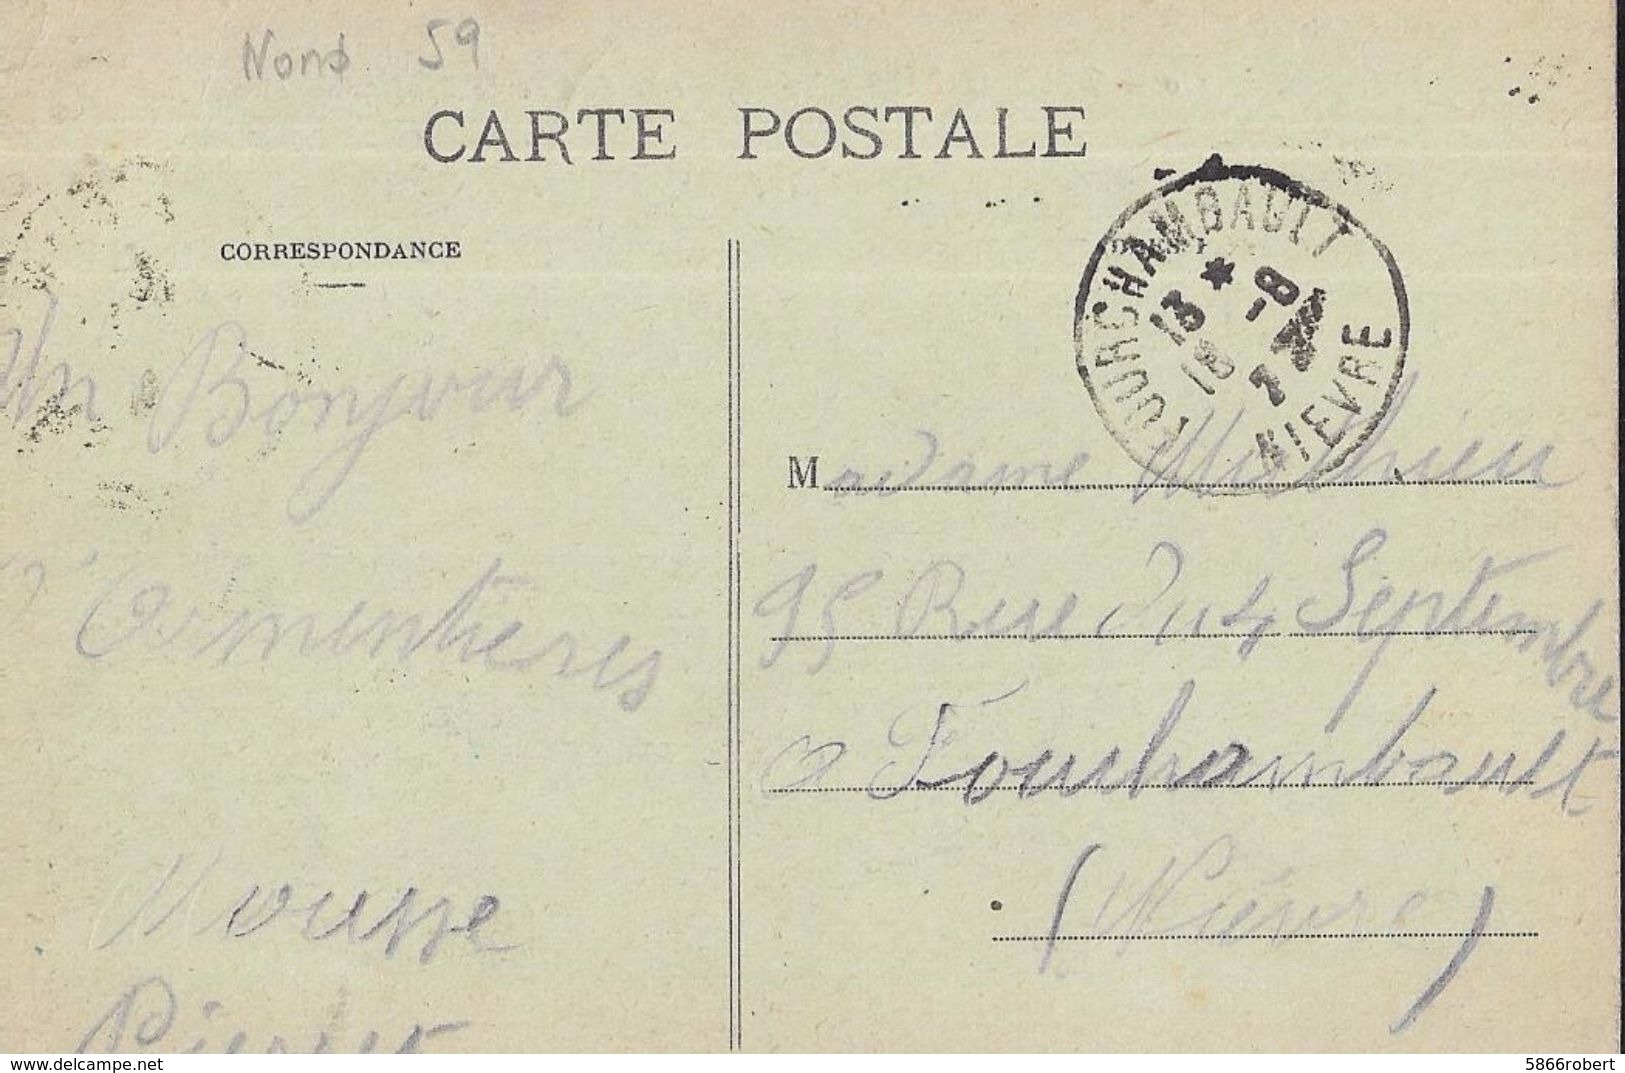 Nord 59
CARTE POSTALE
CORRESPONDANCE
FOURCHAMBAULT
13 * 8
18 -
NIEVRE
Un Bonjour
d'Armentieres
Mousse
Pierret
Madame Mathieu
95 Rue du 4 Septembre
a Fourchambault
(Nièvre)
delcampe.net
5866robert